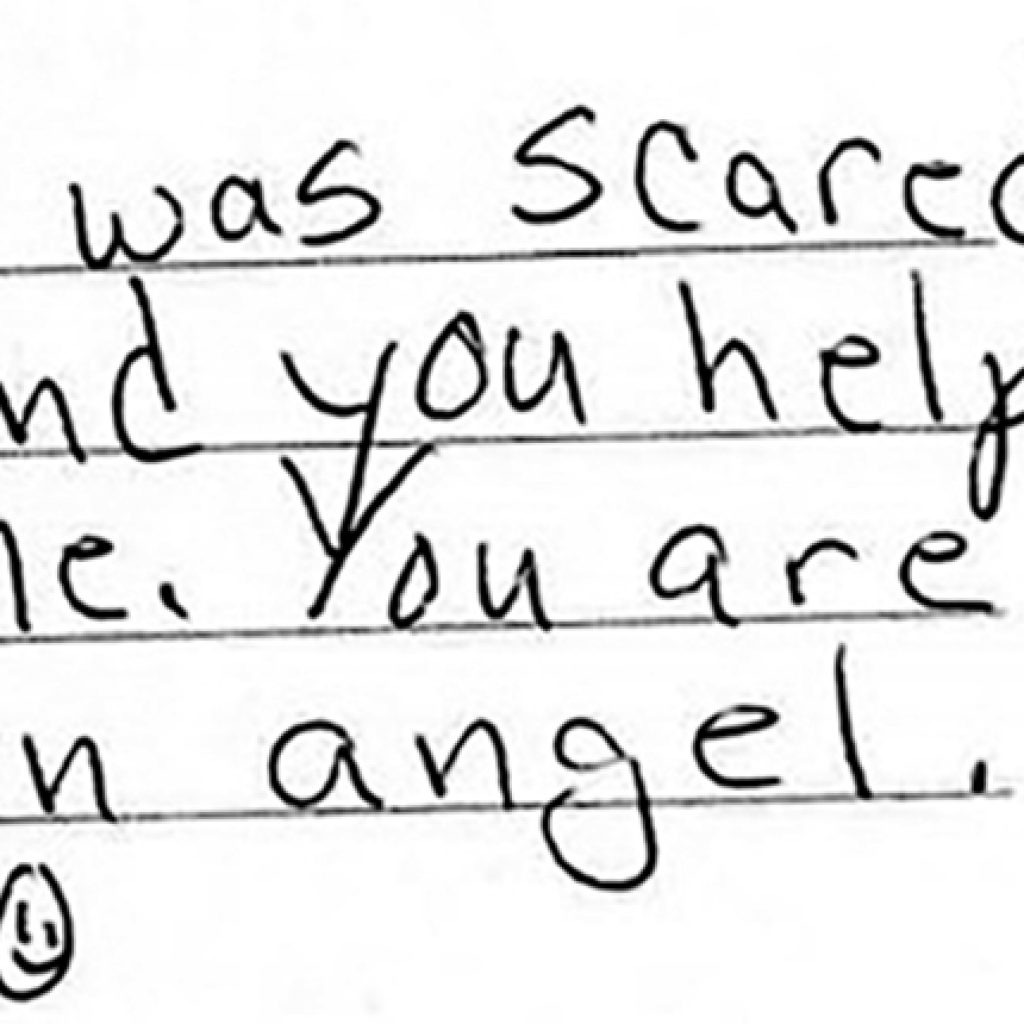 was scared
nd you help
me. You are
n angel.